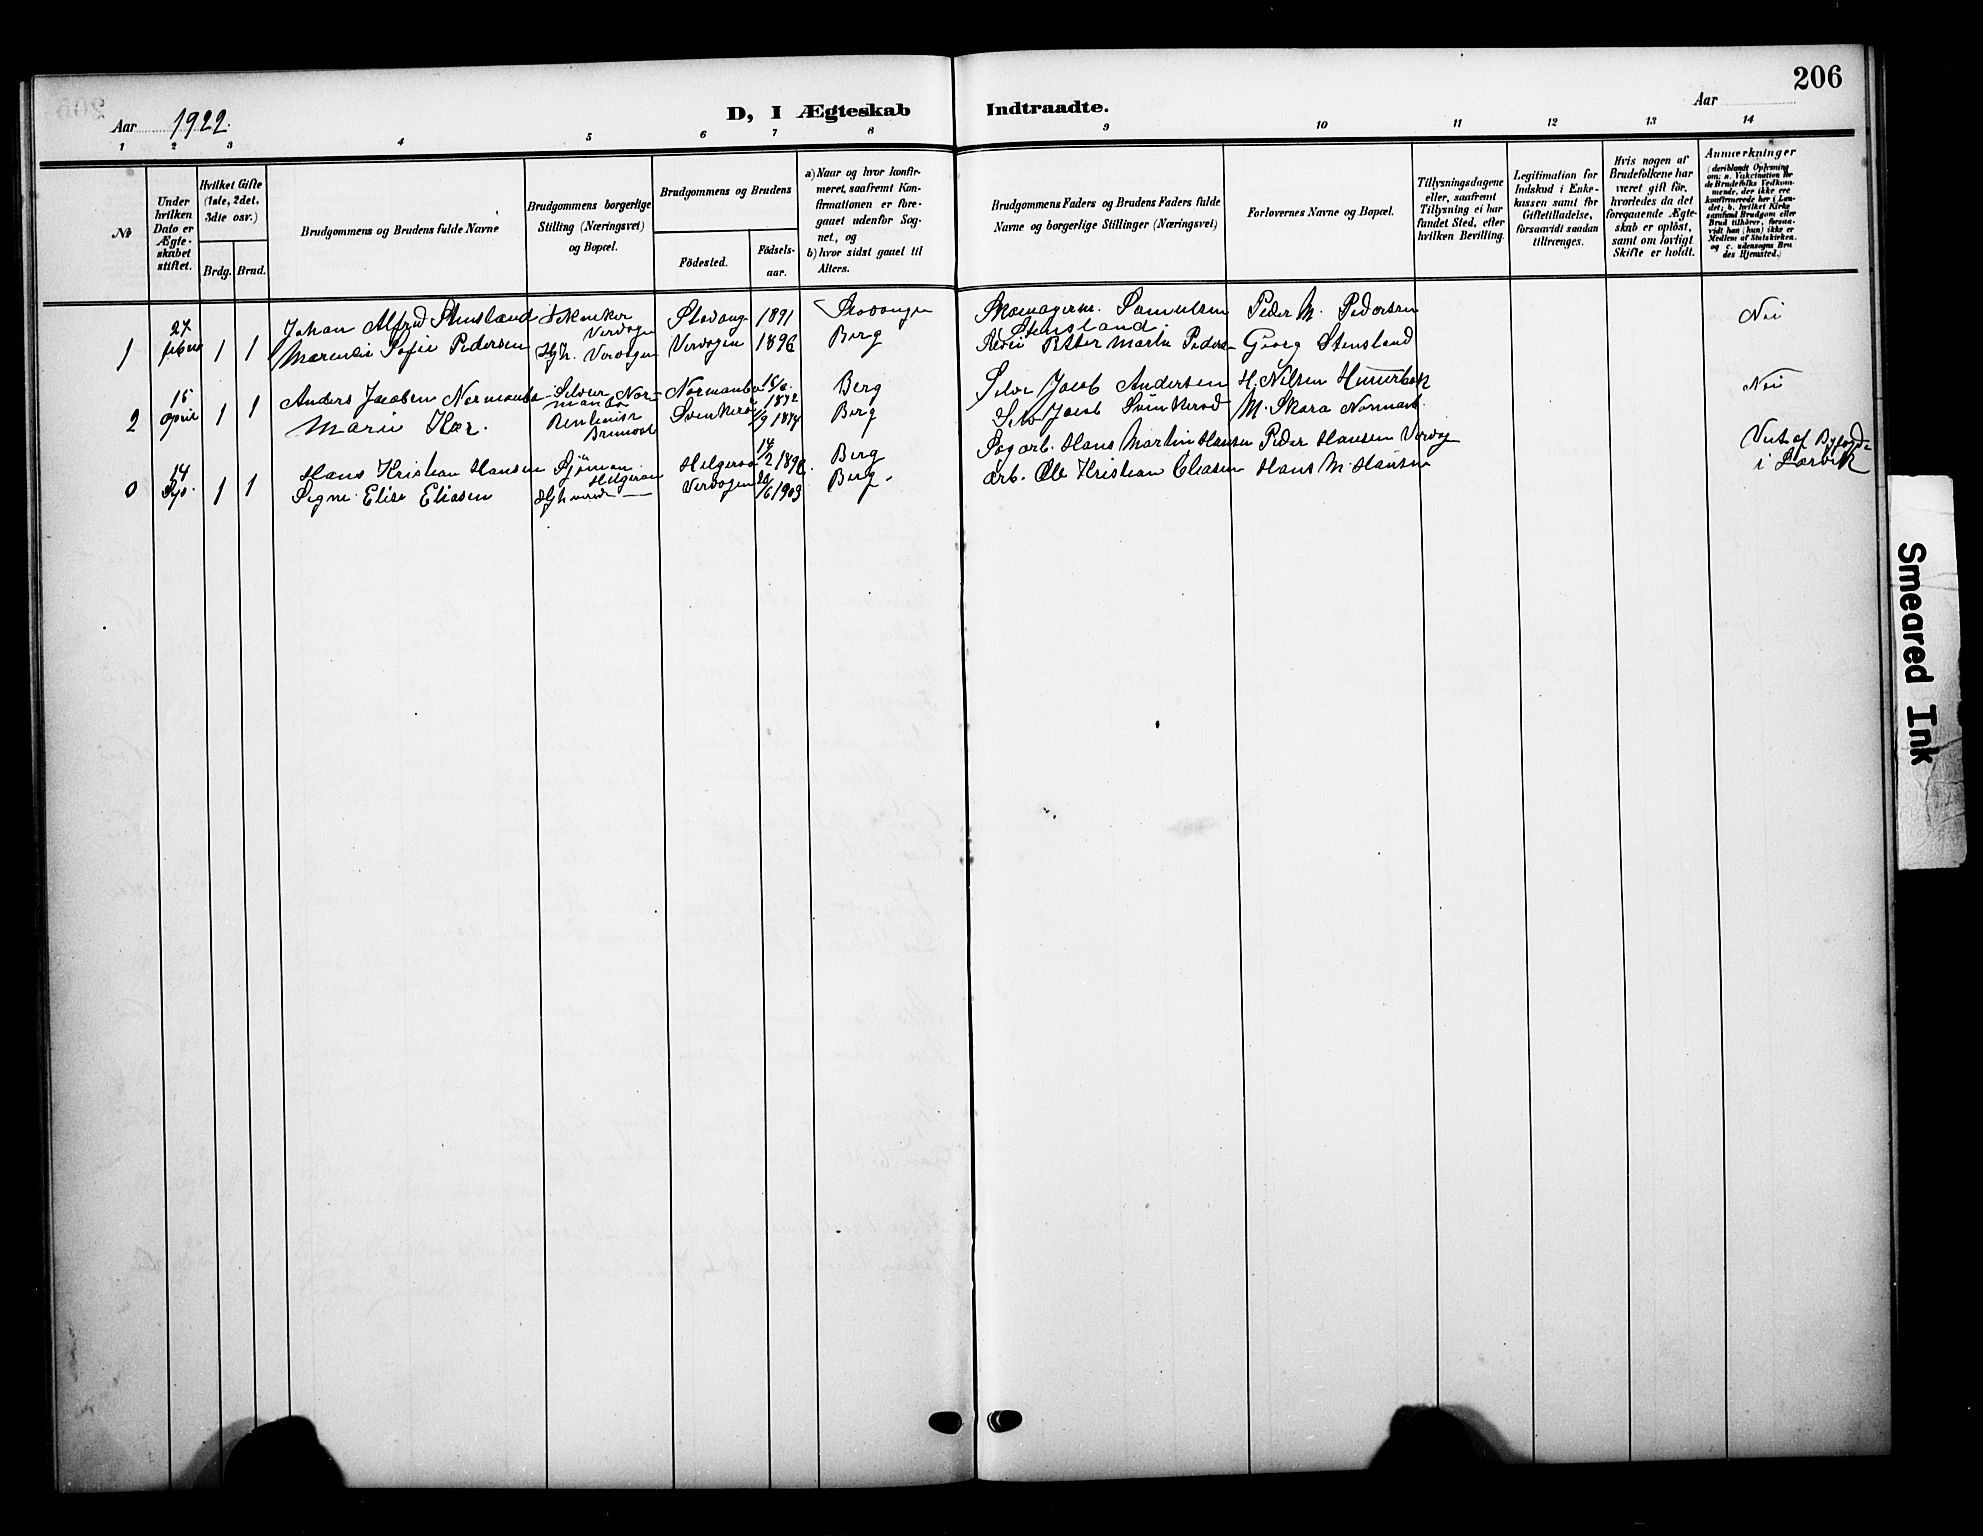 206
Aar 1922.
D, I Ægteskab Indtraadte.
Aar
1 2 3 4 5 6 7 8 9 10 11 12 13 14
No
Under hvilken Dato er Ægteskabet stiftet.
Hvilket Gifte (1ste, 2det, 3die osv.)
Brdg. Brud.
Brudgommens og Brudens fulde Navne
Brudgommens borgerlige Stilling (Næringsvei) og Bopæl.
Brudgommens og Brudens
Födested. Födsels-aar.
a) Naar og hvor konfirmeret, saafremt Konfirmationen er foregaaet udenfor Sognet, og
b) hvor sidst gaaet til Alters.
Brudgommens Faders og Brudens Faders fulde Navne og borgerlige Stillinger (Næringsvei)
Forlovernes Navne og Bopæl.
Tillysningsdagene eller, saafremt Tillysning ei har fundet Sted, efter hvilken Bevilling.
Legitimation for Indskud i Enkekassen samt for Giftetilladelse, forsaavidt saadan tiltrænges.
Hvis nogen af Brudefolkene har været gift för, hvorledes da det foregaaende Ægteskab er oplöst, samt om lovligt Skifte er holdt.
Anmærkninger
(deriblandt Oplysning om: a. Vakcination for de Brudefolks Vedkommende, der ikke ere konfirmerede her i Landet; b. hvilket Kirkesamfund Brudgom eller Brud tilhörer, forsaavidt han (hun) ikke er Medlem af Statskirken, og c. udensogns Brudes Hjemsted.)
27 Johan Alfred Stensland Stavang 1891 Stavanger Skomagerm. Samuelsen Peder M. Pedersen Nei
Stensland.
1 febru 1 1 Marensie Sofie Pedersen Hjh. Vervagen Vervagen 1896 Berg Petter Martin Georg Stensland
15 Anders Jacobsen Normanbo Selveier Normanbo 1872 Berg Selve Jacob Andersen H. Nilsen Nei
2 April 1 1 Marie Kær. 1874 Berg Selv Jacob Svinkeröd M. Skara
14 Hans Kristian Hansen Sjömand Helgeroa 14/2 1896. Berg Sagarb. Hans Martin Hansen Peder Hansen Vervag
i Larvik
0 1 1 Signe Elise Eliasen Vervagen 1903 Berg. arb. Ole Kristian Eliasen Hans M. Hansen
Smeared Ink